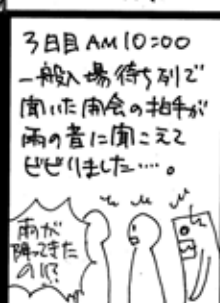 3日目AM10:00
一般入場待ち列で
聞いた開会の拍手が
雨の音に聞こえて
ビビりました…。
雨が
降ってきた
の!?